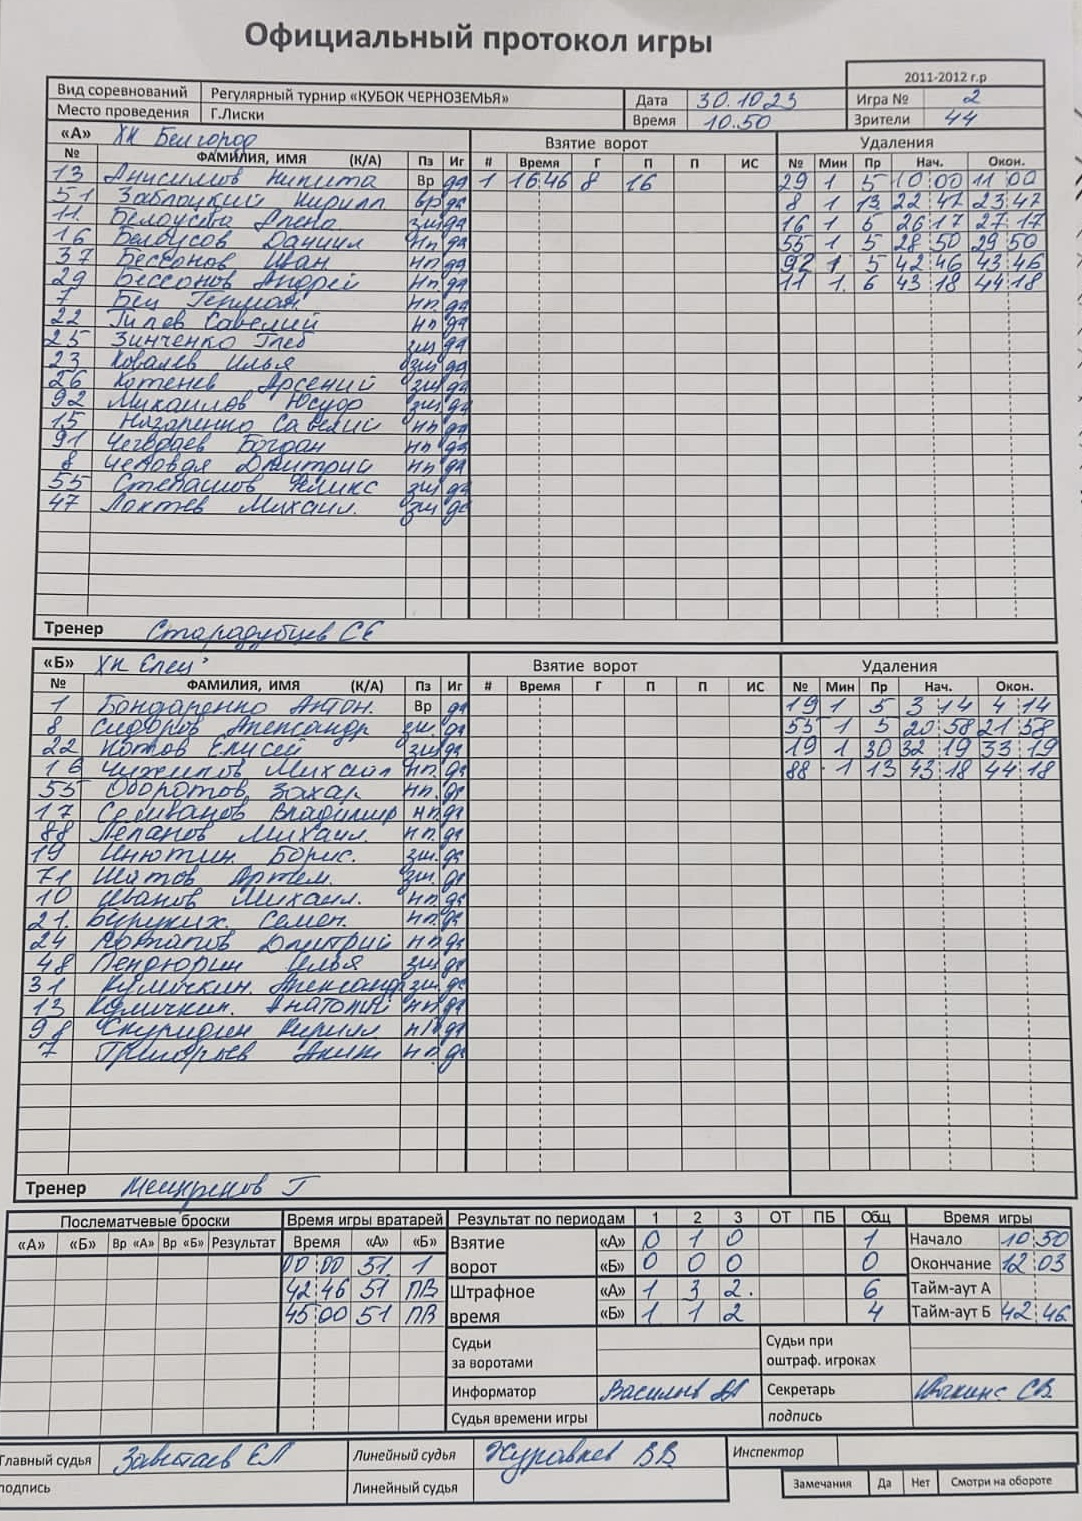 Официальный протокол игры
2011-2012 г.р
Вид соревнований Регулярный турнир «КУБОК ЧЕРНОЗЕМЬЯ» Дата 30.10.23 Игра № 2
Место проведения Г.Лиски Время 10.50 Зрители 44
«А» ХК Белгород Взятие ворот Удаления
№ ФАМИЛИЯ, ИМЯ (К/А) Пз Иг # Время Г П П ИС № Мин Пр Нач. Окон.
13 Анисимов Никита Вр да 1 16 46 8 16 29 1 5 10 00 11 00
51 Заблоцкий Кирилл вр да 8 1 13 22 47 23 47
11 Белоусова Алена зщ да 16 1 5 26 17 27 17
16 Белоусов Даниил нп да 55 1 5 28 50 29 50
37 Бессонов Иван нп да 92 1 5 42 46 43 46
29 Бессонов Андрей нп да 11 1. 6 43 18 44 18
7 Бец Герман нп да
22 Гилев Савелий нп да
25 Зинченко Глеб зщ да
23 Ковалев Илья зщ да
26 Котенев Арсений зщ да
92 Михайлов Юсуф зщ да
15 Назаренко Савелий нп да
91 Чегодаев Богдан нп да
8 Дмитрий нп да
55 Степашов Феликс зщ да
47 Локтев Михаил. зщ да
Тренер Стародубцев СЕ
«Б» ХК Елец Взятие ворот Удаления
№ ФАМИЛИЯ, ИМЯ (К/А) Пз Иг # Время Г П П ИС № Мин Пр Нач. Окон.
1 Бондаренко Антон. Вр да 19 1 5 3 14 4 14
8 Сидоров Александр зщ. да 55 1 5 20 58 21 58
22 Котов Елисей зщ да 19 1 30 32 19 33 19
16 Чужинов Михаил нп. да 88 1 13 43 18 44 18
55 Оборотов Захар нп. да
17 Селиванов Владимир нп. да
88 Лепанов Михаил. нп. да
19 Инютин. Борис. зщ. да
71 Шатов Артем. зщ. да
10 Иванов Михаил. нп. да
21. Семен. нп. да
24 Дмитрий нп да
48 Пендюрин Илья зщ да
31 Кумичкин. Александр зщ. да
13 Кумичкин. Анатолий нп да
98 Скуридин Кирилл нп да
7 Григорьев нп. да
Тренер Г
Послематчевые броски Время игры вратарей Результат по периодам 1 2 3 ОТ ПБ Общ Время игры
«А» «Б» Вр «А» Вр «Б» Результат Время «А» «Б» Взятие «А» 0 1 0 1 Начало 10 50
00 00 51 1 ворот «Б» 0 0 0 0 Окончание 12 03
42 46 51 ПВ Штрафное «А» 1 3 2. 6 Тайм-аут А
45 00 51 ПВ время «Б» 1 1 2 4 Тайм-аут Б 42 46
Судьи за воротами Судьи при оштраф. игроках
Информатор Секретарь СВ
Судья времени игры подпись
Главный судья ЕЛ Линейный судья Журавлев ВВ Инспектор
подпись Линейный судья Замечания Да Нет Смотри на обороте